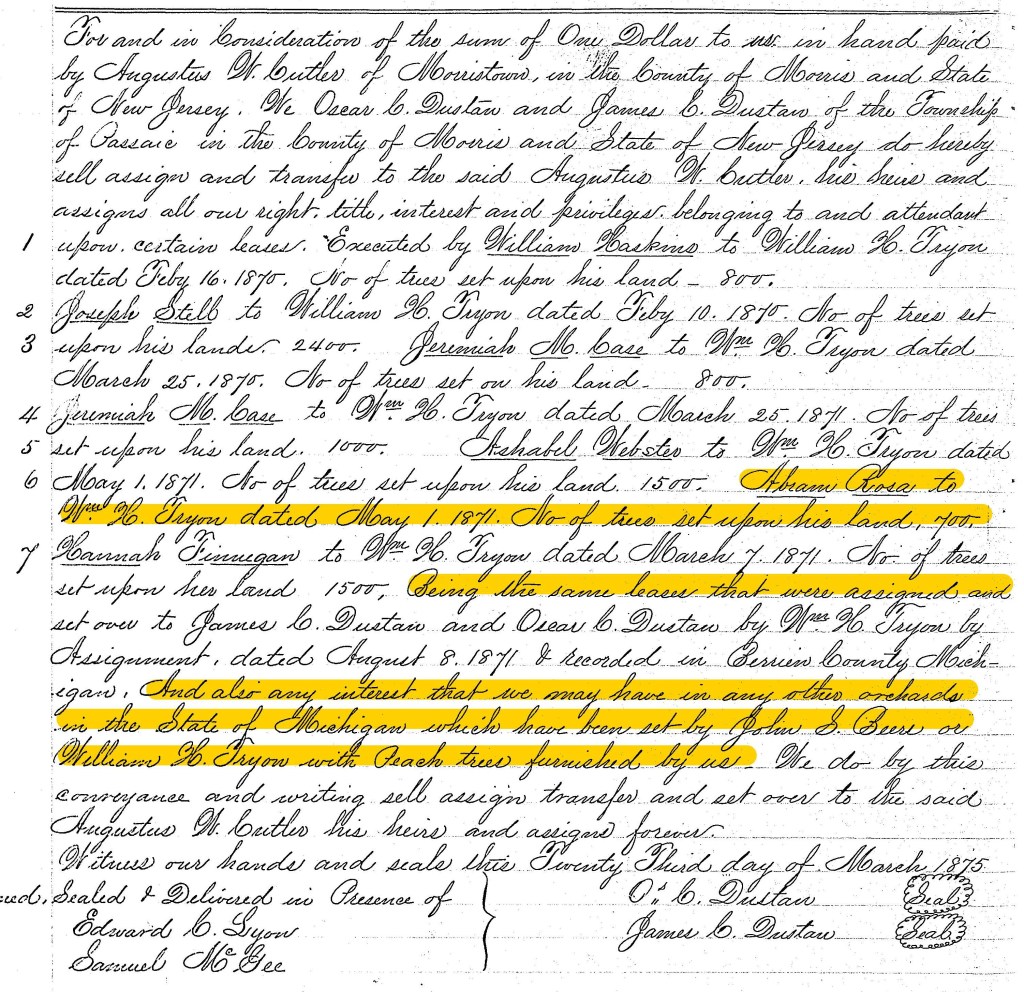 For and in Consideration of the sum of One Dollar to us in hand paid
by Augustus W. Cutler of Morristown, in the County of Morris and State
of New Jersey. We Oscar C. Dustan and James C. Dustan of the Township
of Passaic in the County of Morris and State of New Jersey do hereby
sell assign and transfer to the said Augustus W. Cutler, his heirs and
assigns all our right, title, interest and privileges belonging to and attendant
1 upon certain leases. Executed by William Haskins to William H. Tryon
dated Feby 16. 1870. No of trees set upon his land - 800.
2 Joseph Still to William H. Tryon dated Feby 10. 1870. No of trees set
3 upon his lands. 2400. Jeremiah M. Case to Wm H. Tryon dated
March 25. 1870. No of trees set on his land - 800.
4 Jeremiah M. Case to Wm H. Tryon dated March 25. 1871. No of trees
5 set upon his land. 1000. Ashabel Webster to Wm H. Tryon dated
6 May 1. 1871. No of trees set upon his land. 1500. Abram Rosa to
Wm H. Tryon dated May 1. 1871. No of trees set upon his land, 700.
7 Hannah Finnegan to Wm H. Tryon dated March 7. 1871. No. of trees
set upon her land 1500, Being the same leases that were assigned and
set over to James C. Dustan and Oscar C. Dustan by Wm H. Tryon by
Assignment, dated August 8. 1871 & recorded in Berrien County Mich-
igan. And also any interest that we may have in any other orchards
in the State of Michigan which have been set by John S. Beers or
William H. Tryon with Peach trees furnished by us - We do by this
conveyance and writing sell assign transfer and set over to the said
Augustus W. Cutler his heirs and assigns forever.
Witness our hands and seals this Twenty Third day of March 1875
Sealed & Delivered in Presence of O. C. Dustan Seal
Edward C. Lyon James C. Dustan Seal
Samuel McGee